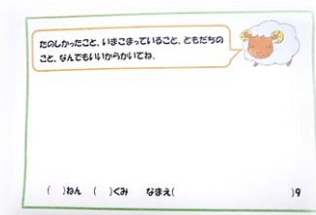 たのしかったこと、いまこまっていること、ともだちの
こと、なんでもいいからかいてね。
(　)ねん　(　)くみ　なまえ(　　　　　　　　)9